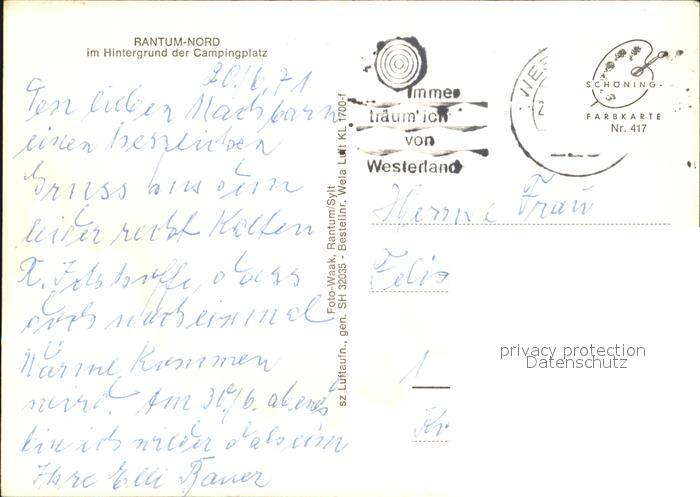 RANTUM-NORD
im Hintergrund der Campingplatz
20/6.71
Den lieben Nachbarn
einen herzlichen
Gruss aus dem
leider recht kalten
hoffe, dass
doch noch einmal
Wärme kommen
wird. Am 30./6. abends
bin ich wieder daheim
Ihre Elli Bauer
Foto-Waak, Rantum/Sylt
sz Luftaufn., gen. SH 32035 - Bestellnr. Wela Luft KL 1700-f
Immer
träum' ich
von
Westerland
WES
2
SCHÖNING
FARBKARTE
Nr. 417
Herrn u Frau
Felix
1
Kr
privacy protection
Datenschutz